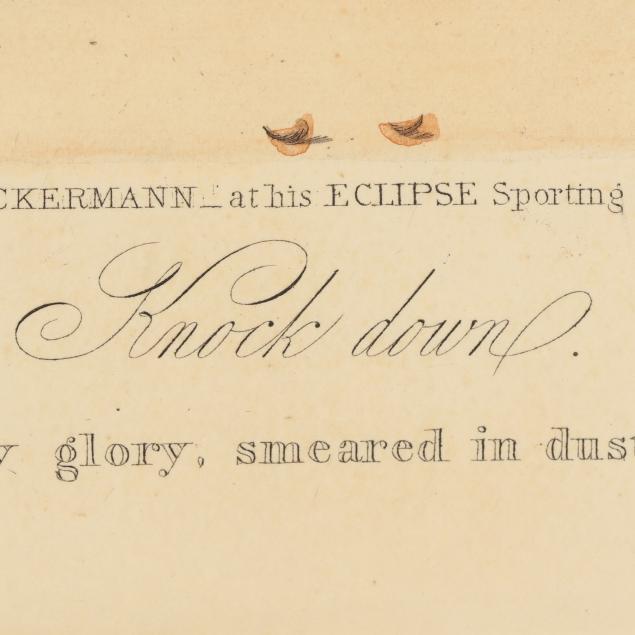 CKERMANN at his ECLIPSE Sporting
Knock down.
y glory, smeared in dust